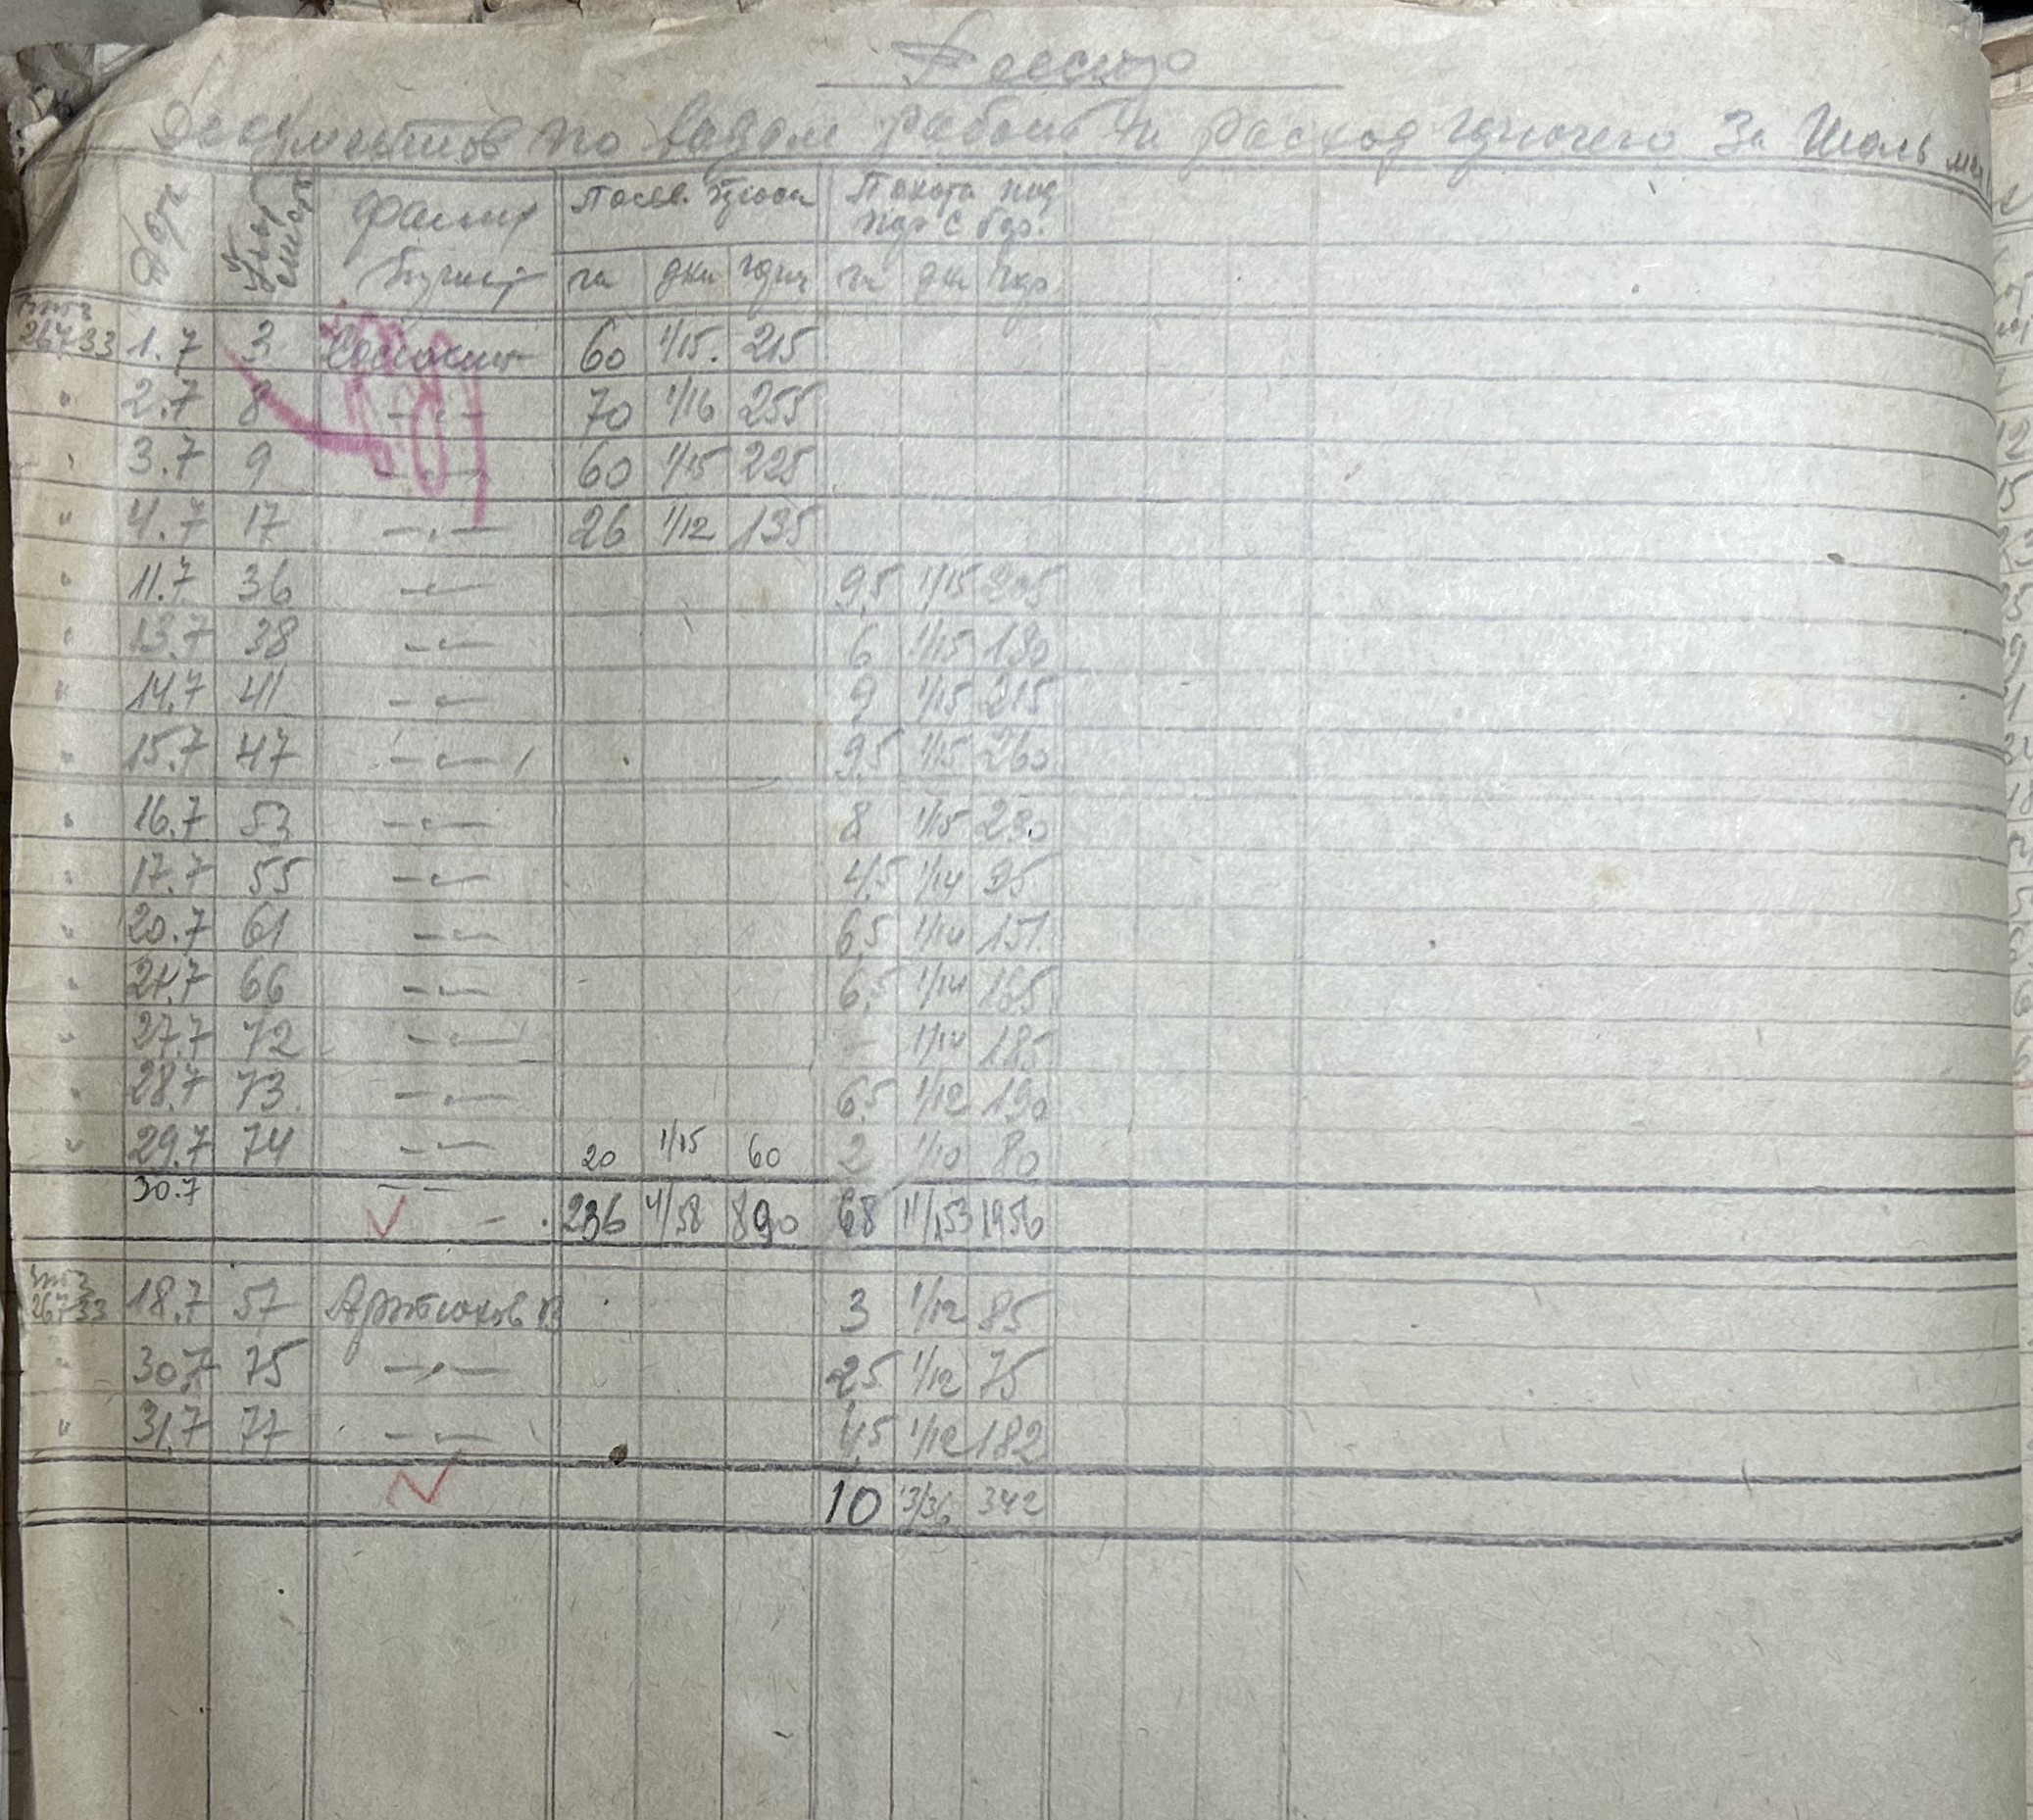 Реестр
Документов по видам работ и расход горючего За Июль м-ц
Дата
Фамил
Посев. проса
Пахота под
пар с бор.
га дни горюч га дни гор.
267 33 1.7 3 60 1/15. 215
" 2.7 8 —"— 70 1/16 255
" 3.7 9 —"— 60 1/15 225
" 4.7 17 —"— 26 1/12 135
" 11.7 36 —"— 9,5 1/15 205
" 13.7 38 —"— 6 1/15 190
" 14.7 41 —"— 9 1/15 215
" 15.7 47 —"— 9,5 1/15 260
" 16.7 53 —"— 8 1/15 230
" 17.7 55 —"— 4,5 1/14 95
" 20.7 61 —"— 6,5 1/14 151
" 21.7 66 —"— 6,5 1/14 155
" 27.7 72 —"— - 1/14 185
" 28.7 73 —"— 6,5 1/12 190
" 29.7 74 —"— 20 1/15 60 2 1/10 80
30.7 —"—
236 4/58 890 68 11/153 1956
267 33 18.7 57 3 1/12 85
" 30.7 75 —"— 2,5 1/12 75
" 31.7 77 —"— 4,5 1/12 182
10 3/36 342